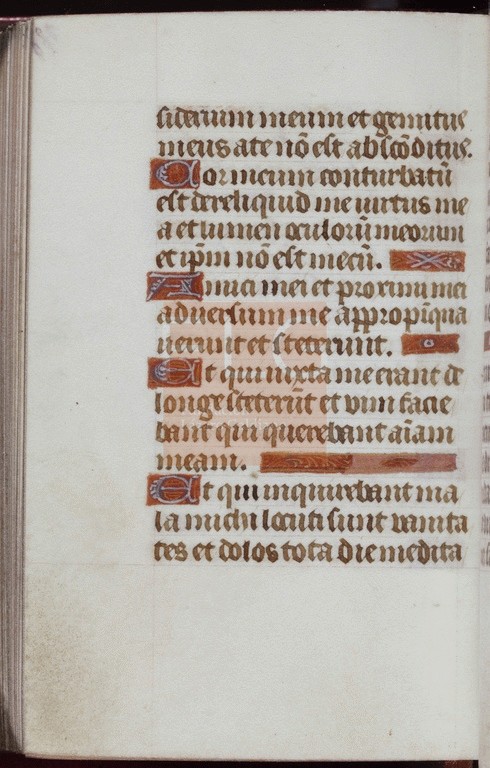 siderium meum et gemitus
meus a te nõ est abscõditus.
Cor meum conturbatũ
est dereliquid me uirtus me
a et lumen oculorũ meorum
et ip̃m nõ est mecũ.
Amici mei et proximi mei
aduersum me appropĩqua
uerunt et steterunt.
Et qui iuxta me erant de
longe steterũt et uim facie
bant qui querebant aĩam
meam.
Et qui inquirebant ma
la michi locuti sunt uanita
tes et dolos tota die medita